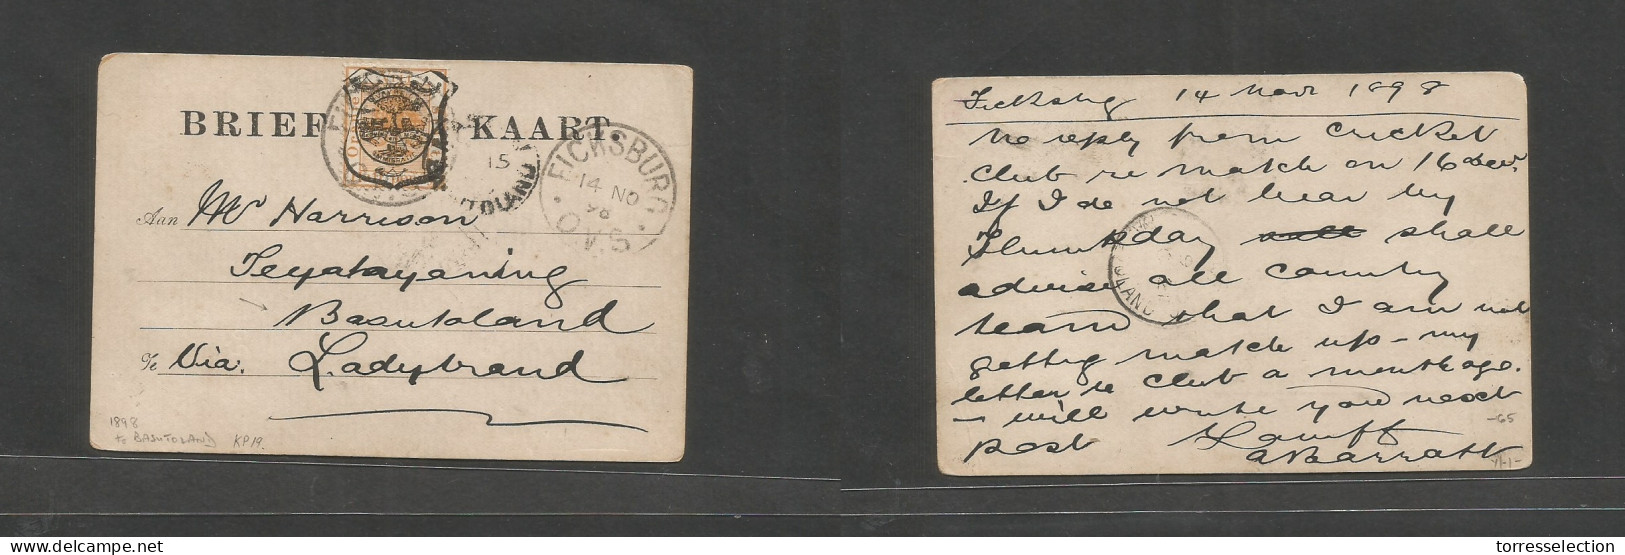 BRIEF KAART
FICKSBURG
14 NO
98
O.V.S.
15
Aan Mr Harrison
Teyateyaning
Basutoland
Te Via. Ladybrand
1898
to BASUTOLAND KP19.
Ficksbg 14 Novr 1898
No reply from cricket
club re match on 16 Decr.
If I do not hear by
Thursday shall
advise all country
team that I am not
getting match up - my
letter to club a month ago.
- will write you next
post
ABarratt
-65
torresselection.com